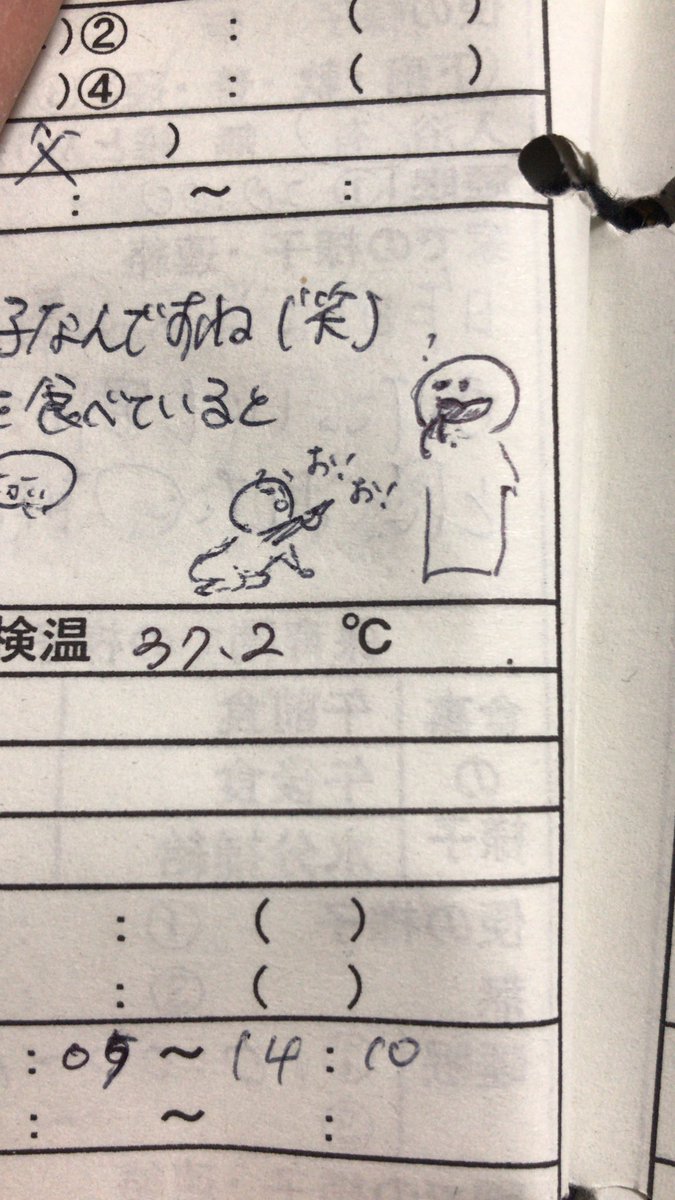 )② : ( )
)④ : ( )
父 )
: 〜 :
子なんですね(笑)
を食べていると
?
お!
お!
検温 37.2 ℃
: ( )
: ( )
:05 〜 14:10
: 〜 :